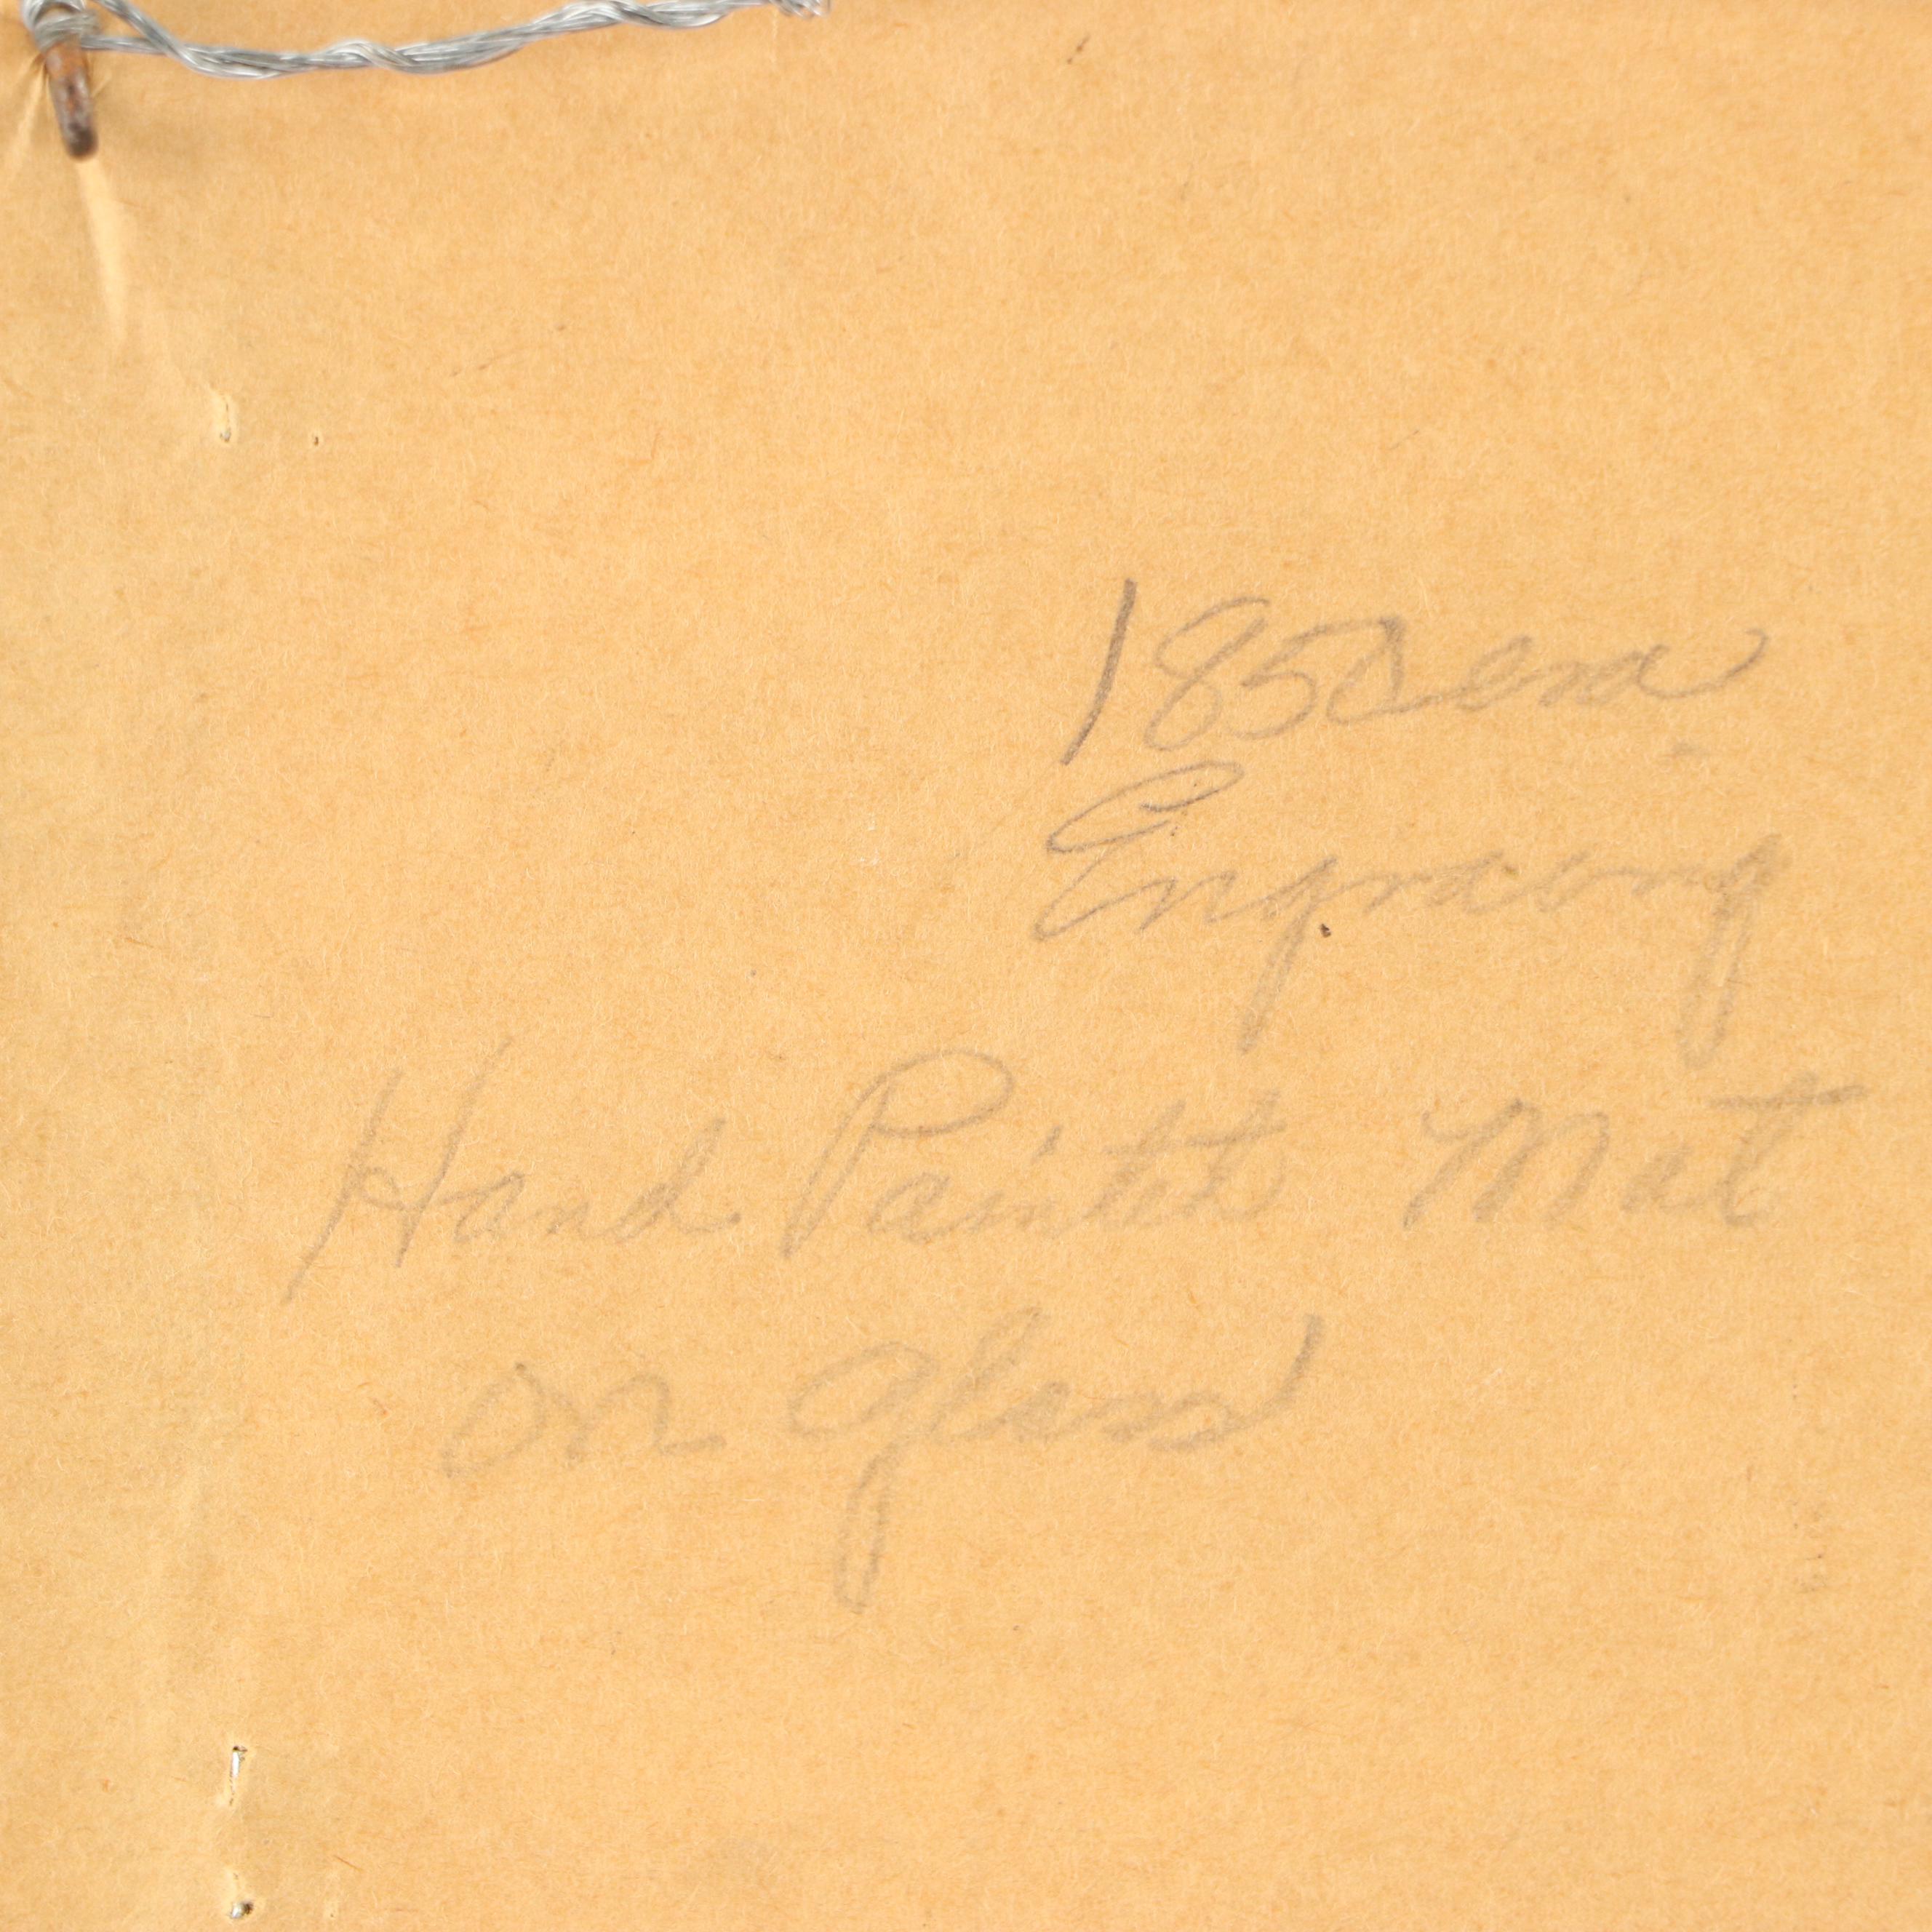 1850 era
Engraving
Hand Painted Mat
on glass